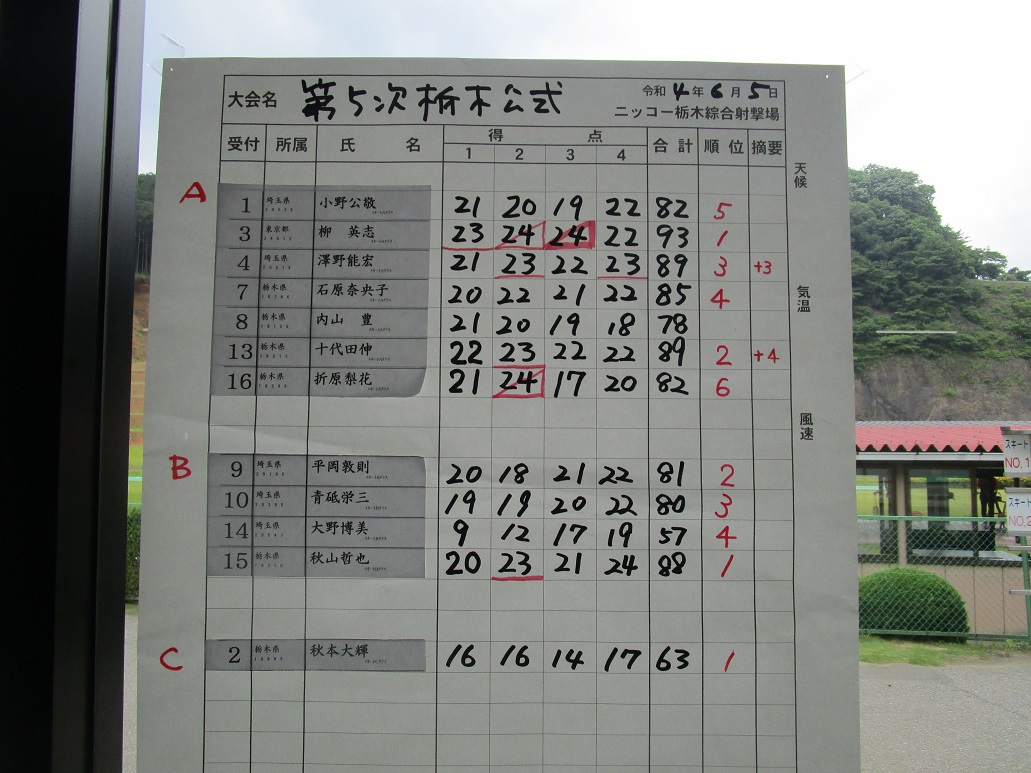 大会名 第5次栃木公式 令和4年6月5日
ニッコー栃木綜合射撃場
受付 所属 氏名 得点 合計 順位 摘要
1 2 3 4
天候
A
1 埼玉県 小野公敬 21 20 19 22 82 5
3 東京都 柳 英志 23 24 24 22 93 1
4 埼玉県 澤野能宏 21 23 22 23 89 3 +3
7 栃木県 石原奈央子 20 22 21 22 85 4
気温
8 栃木県 内山 豊 21 20 19 18 78
13 栃木県 十代田伸 22 23 22 22 89 2 +4
16 栃木県 折原梨花 21 24 17 20 82 6
風速
B
9 埼玉県 平岡敦則 20 18 21 22 81 2
10 埼玉県 青砥栄三 19 19 20 22 80 3
14 埼玉県 大野博美 9 12 17 19 57 4
15 栃木県 秋山哲也 20 23 21 24 88 1
C
2 栃木県 秋本大輝 16 16 14 17 63 1
スキート
NO.1
スキート
NO.2